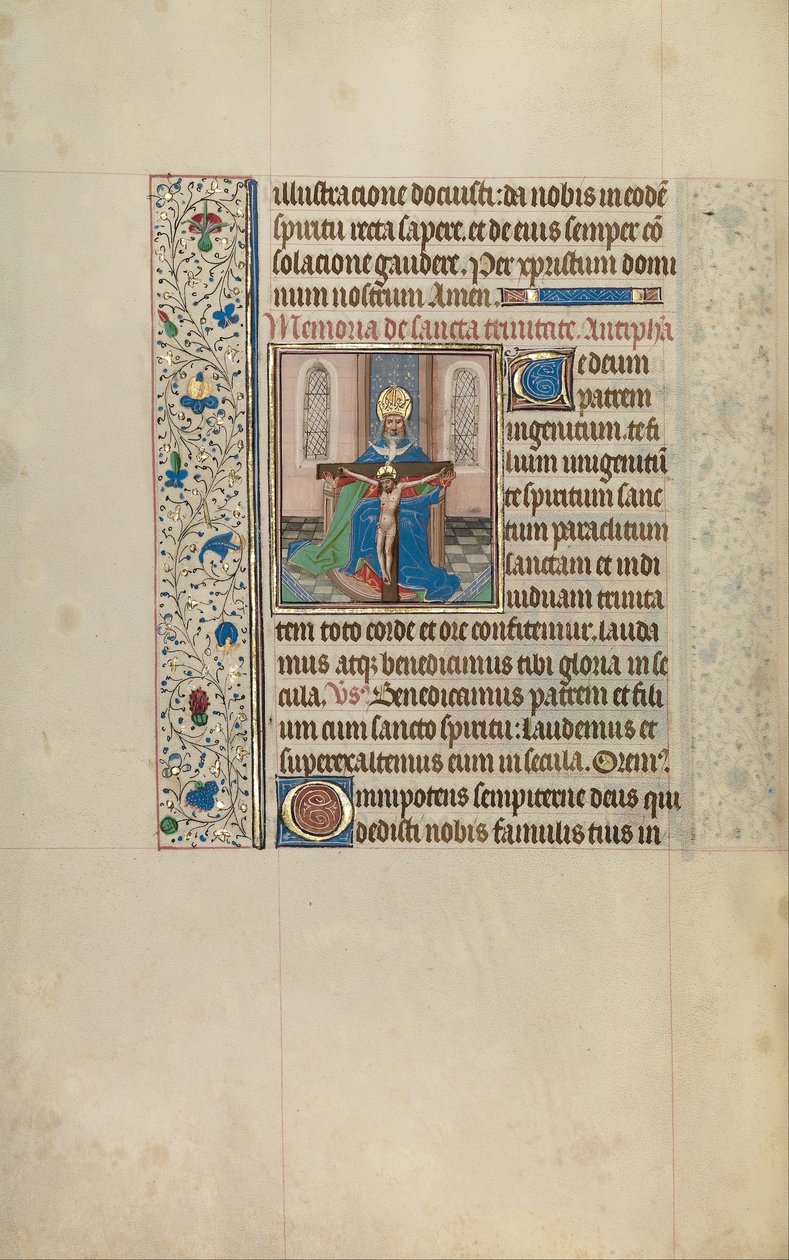 illustracione docuisti: da nobis in eodē
spiritu recta sapere. et de eius semper cō
solacione gaudere. Per xpristum domi
num nostrum Amen.
Memoria de sancta trinitate. Antipha
Te deum
patrem
ingenitum. te fi
lium unigenitū
te spiritum sanc
tum paraclitum
sanctam et indi
uiduam trinita
tem toto corde et ore confitemur. lauda
mus atqꝫ benedicimus tibi gloria in se
cula. Vs? Benedicamus patrem et fili
um cum sancto spiritu: Laudemus et
superexaltemus eum in secula. Orem?.
Omnipotens sempiterne deus qui
dedisti nobis famulis tuis in